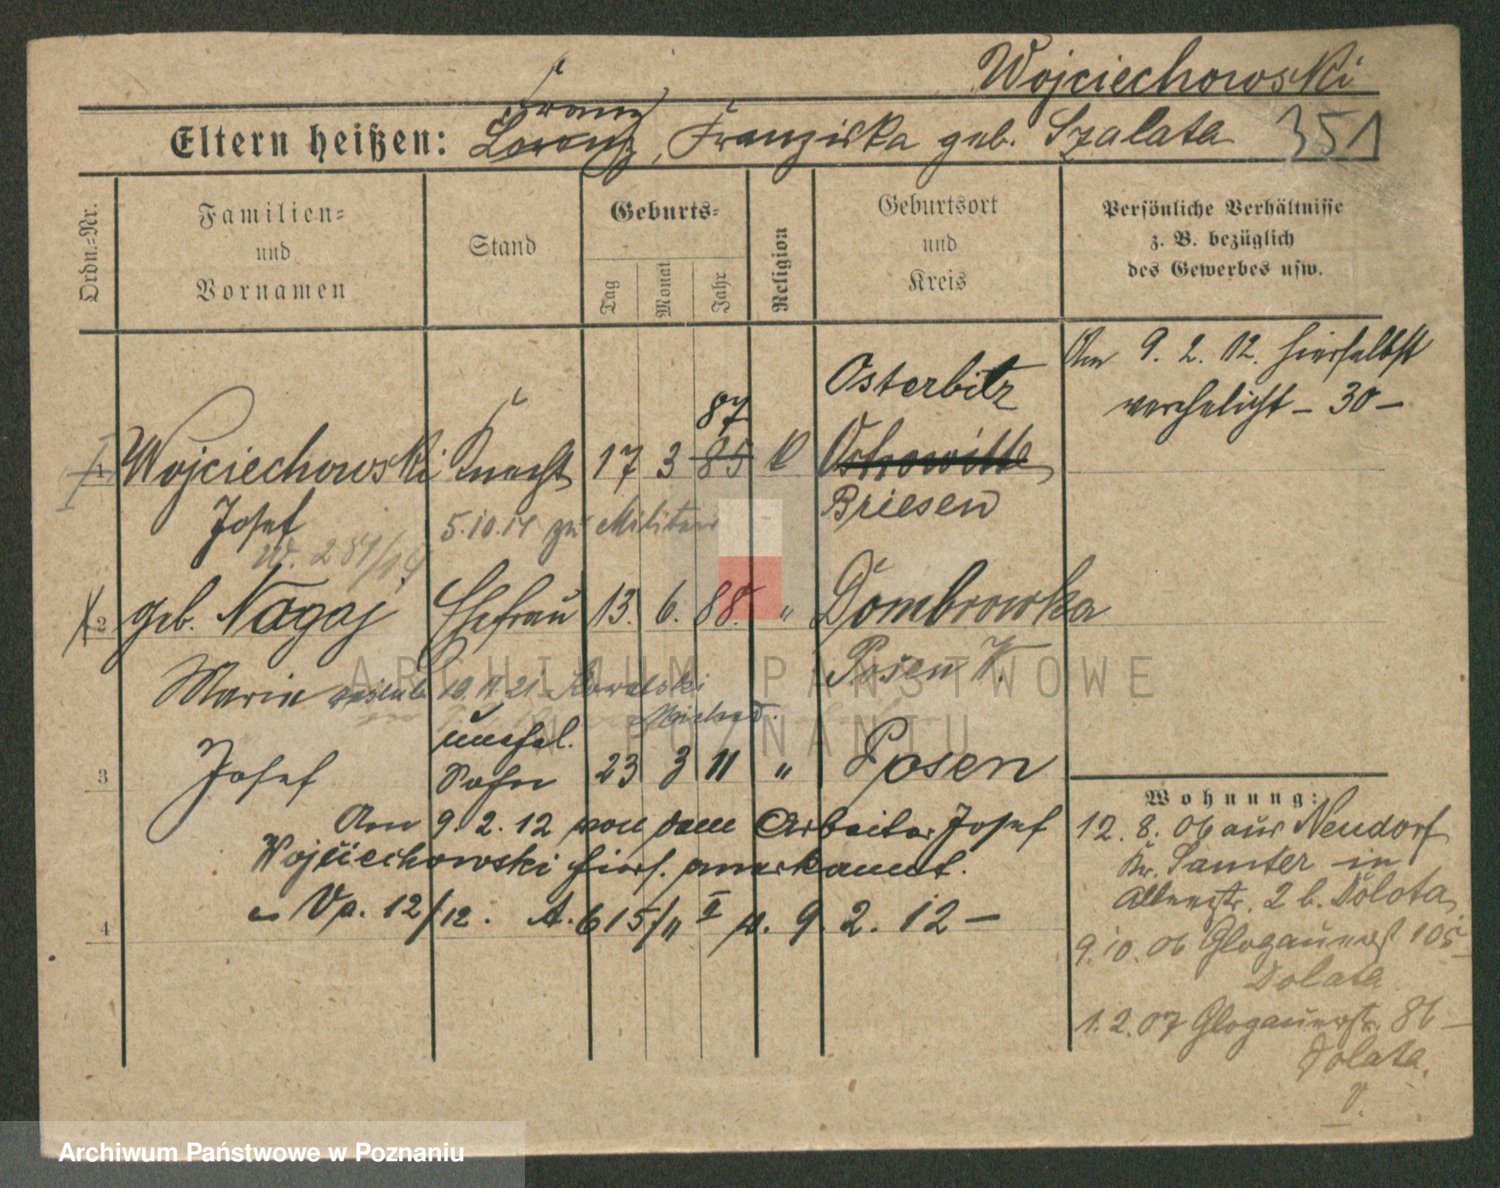 Wojciechowski
Franz
Eltern heißen: Lorenz, Franziska geb. Szalata 351
Ordn.-Nr.
Familien- und Vornamen
Stand
Geburts-
Tag
Monat
Jahr
Religion
Geburtsort und Kreis
Persönliche Verhältnisse
z. B. bezüglich
des Gewerbes usw.
Am 9. 2. 12. hierselbst
verehelicht – 30 –
Osterbitz
87
1 Wojciechowski Knecht 17 3 85 K Ostrowitte
Josef 5.10.14 zu Militär Briesen
2 geb. Nagaj Ehefrau 13. 6. 88. " Dombrowka
Maria Kowalski Posen W.
unehel.
3 Josef Sohn 23 3 11 " Posen
Am 9. 2. 12 von dem Arbeiter Josef
Wojciechowski hier. anerkannt.
Va. 12/12. A. 615/11 9. 2. 12 –
4
Wohnung:
12. 8. 06 aus Neudorf
Kr. Samter in
2 b. Dolata
9. 10. 06 Glogauerst 105
Dolata
1. 2. 07 Glogauerstr. 86 –
Dolata.
ARCHIWUM PAŃSTWOWE
W POZNANIU
Archiwum Państwowe w Poznaniu